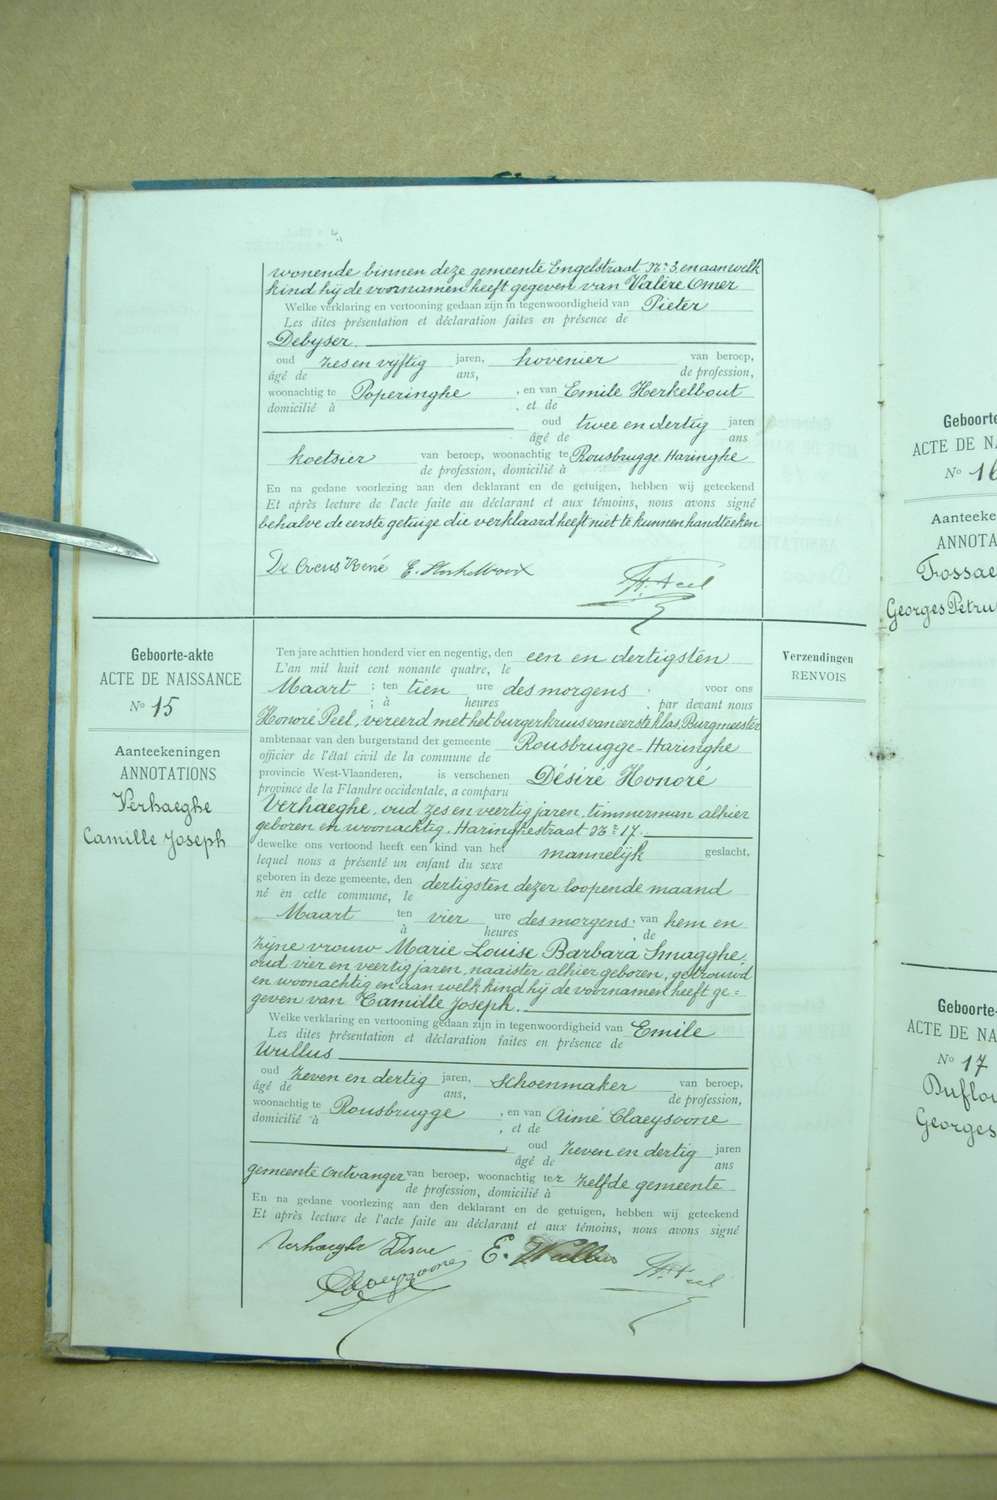 wonende binnen deze gemeente Engelstraat Nr. 3, en aan welk
kind hij de voornamen heeft gegeven van Valère Omer
Welke verklaring en vertooning gedaan zijn in tegenwoordigheid van Pieter
Les dites présentation et déclaration faites en présence de
Debyser.
oud zes en vyftig jaren, hovenier van beroep,
âgé de ans, de profession,
woonachtig te Poperinghe , en van Emile Herkelbout
domicilié à , et de
oud twee en dertig jaren
âgé de ans
koetsier van beroep, woonachtig te Rousbrugge-Haringhe
de profession, domicilié à
En na gedane voorlezing aan den deklarant en de getuigen, hebben wij geteekend
Et après lecture de l'acte faite au déclarant et aux témoins, nous avons signé
behalve de eerste getuige die verklaard heeft niet te kunnen handteeken
De Coens René E. Herkelbout H. Peel
Geboorte-akte
ACTE DE NAISSANCE
No 15
Aanteekeningen
ANNOTATIONS
Verhaeghe
Camille Joseph
Ten jare achttien honderd vier en negentig, den een en dertigsten
L'an mil huit cent nonante quatre, le
Maart ; ten tien ure des morgens . voor ons
; à heures , par devant nous
Honoré Peel, vereerd met het burgerkruis van eerste klas, Burgmeester
ambtenaar van den burgerstand der gemeente Rousbrugge-Haringhe
officier de l'état civil de la commune de
provincie West-Vlaanderen, is verschenen Désiré Honoré
province de la Flandre occidentale, a comparu
Verhaeghe, oud zes en veertig jaren, timmerman alhier
geboren en woonachtig, Haringhestraat Nr. 17.
dewelke ons vertoond heeft een kind van het mannelijk geslacht,
lequel nous a présenté un enfant du sexe
geboren in deze gemeente, den dertigsten dezer loopende maand
né en cette commune, le
Maart ten vier ure des morgens. van hem en
à heures , de
zijne vrouw Marie Louise Barbara Smagghe,
oud vier en veertig jaren, naaister alhier geboren, getrouwd
en woonachtig en aan welk kind hij de voornamen heeft ge=
geven van Camille Joseph.
Welke verklaring en vertooning gedaan zijn in tegenwoordigheid van Emile
Les dites présentation et déclaration faites en présence de
Wullus
oud zeven en dertig jaren, schoenmaker van beroep,
âgé de ans, de profession,
woonachtig te Rousbrugge , en van Aimé Claeysoone
domicilié à , et de
oud zeven en dertig jaren
âgé de ans
gemeente ontvanger van beroep, woonachtig ter zelfde gemeente
de profession, domicilié à
En na gedane voorlezing aan den deklarant en de getuigen, hebben wij geteekend
Et après lecture de l'acte faite au déclarant et aux témoins, nous avons signé
Verhaeghe Désiré E. Wullus H. Peel
Claeysoone
Verzendingen
RENVOIS
Geboorte
ACTE DE NA
No 16
Aanteeke
ANNOTA
Fossae
Georges Petru
Geboorte-
ACTE DE NA
No 17
Duflou
Georges